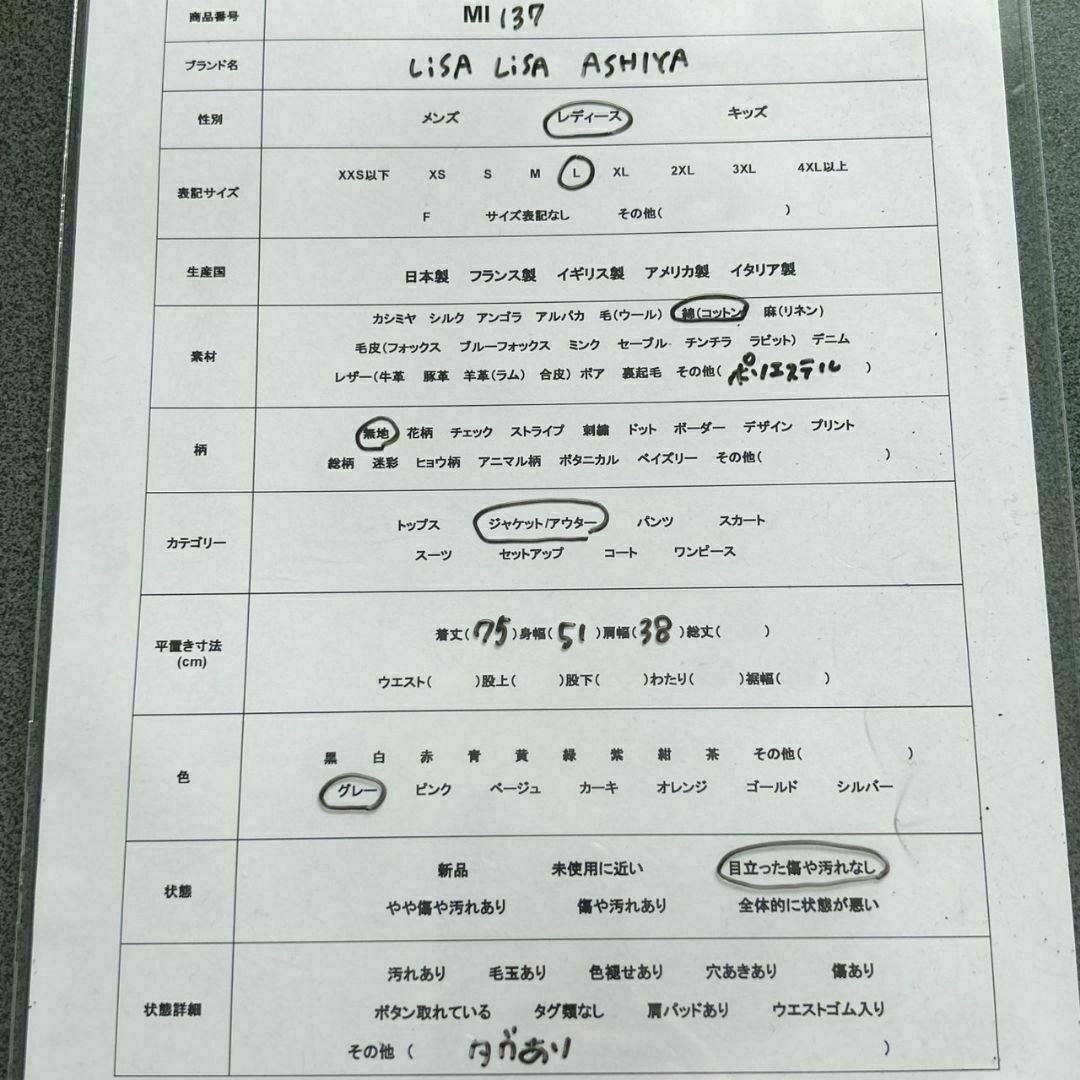 商品番号 MI 137
ブランド名 LiSA LiSA ASHIYA
性別 メンズ レディース キッズ
表記サイズ XXS以下 XS S M L XL 2XL 3XL 4XL以上
F サイズ表記なし その他( )
生産国 日本製 フランス製 イギリス製 アメリカ製 イタリア製
素材 カシミヤ シルク アンゴラ アルパカ 毛(ウール) 綿(コットン) 麻(リネン)
毛皮(フォックス ブルーフォックス ミンク セーブル チンチラ ラビット) デニム
レザー(牛革 豚革 羊革(ラム) 合皮) ボア 裏起毛 その他( ポリエステル )
柄 無地 花柄 チェック ストライプ 刺繍 ドット ボーダー デザイン プリント
総柄 迷彩 ヒョウ柄 アニマル柄 ボタニカル ペイズリー その他( )
カテゴリー トップス ジャケット/アウター パンツ スカート
スーツ セットアップ コート ワンピース
平置き寸法 着丈( 75 )身幅( 51 )肩幅( 38 )総丈( )
(cm) ウエスト( )股上( )股下( )わたり( )裾幅( )
色 黒 白 赤 青 黄 緑 紫 紺 茶 その他( )
グレー ピンク ベージュ カーキ オレンジ ゴールド シルバー
状態 新品 未使用に近い 目立った傷や汚れなし
やや傷や汚れあり 傷や汚れあり 全体的に状態が悪い
状態詳細 汚れあり 毛玉あり 色褪せあり 穴あきあり 傷あり
ボタン取れている タグ類なし 肩パッドあり ウエストゴム入り
その他 ( タグあり )